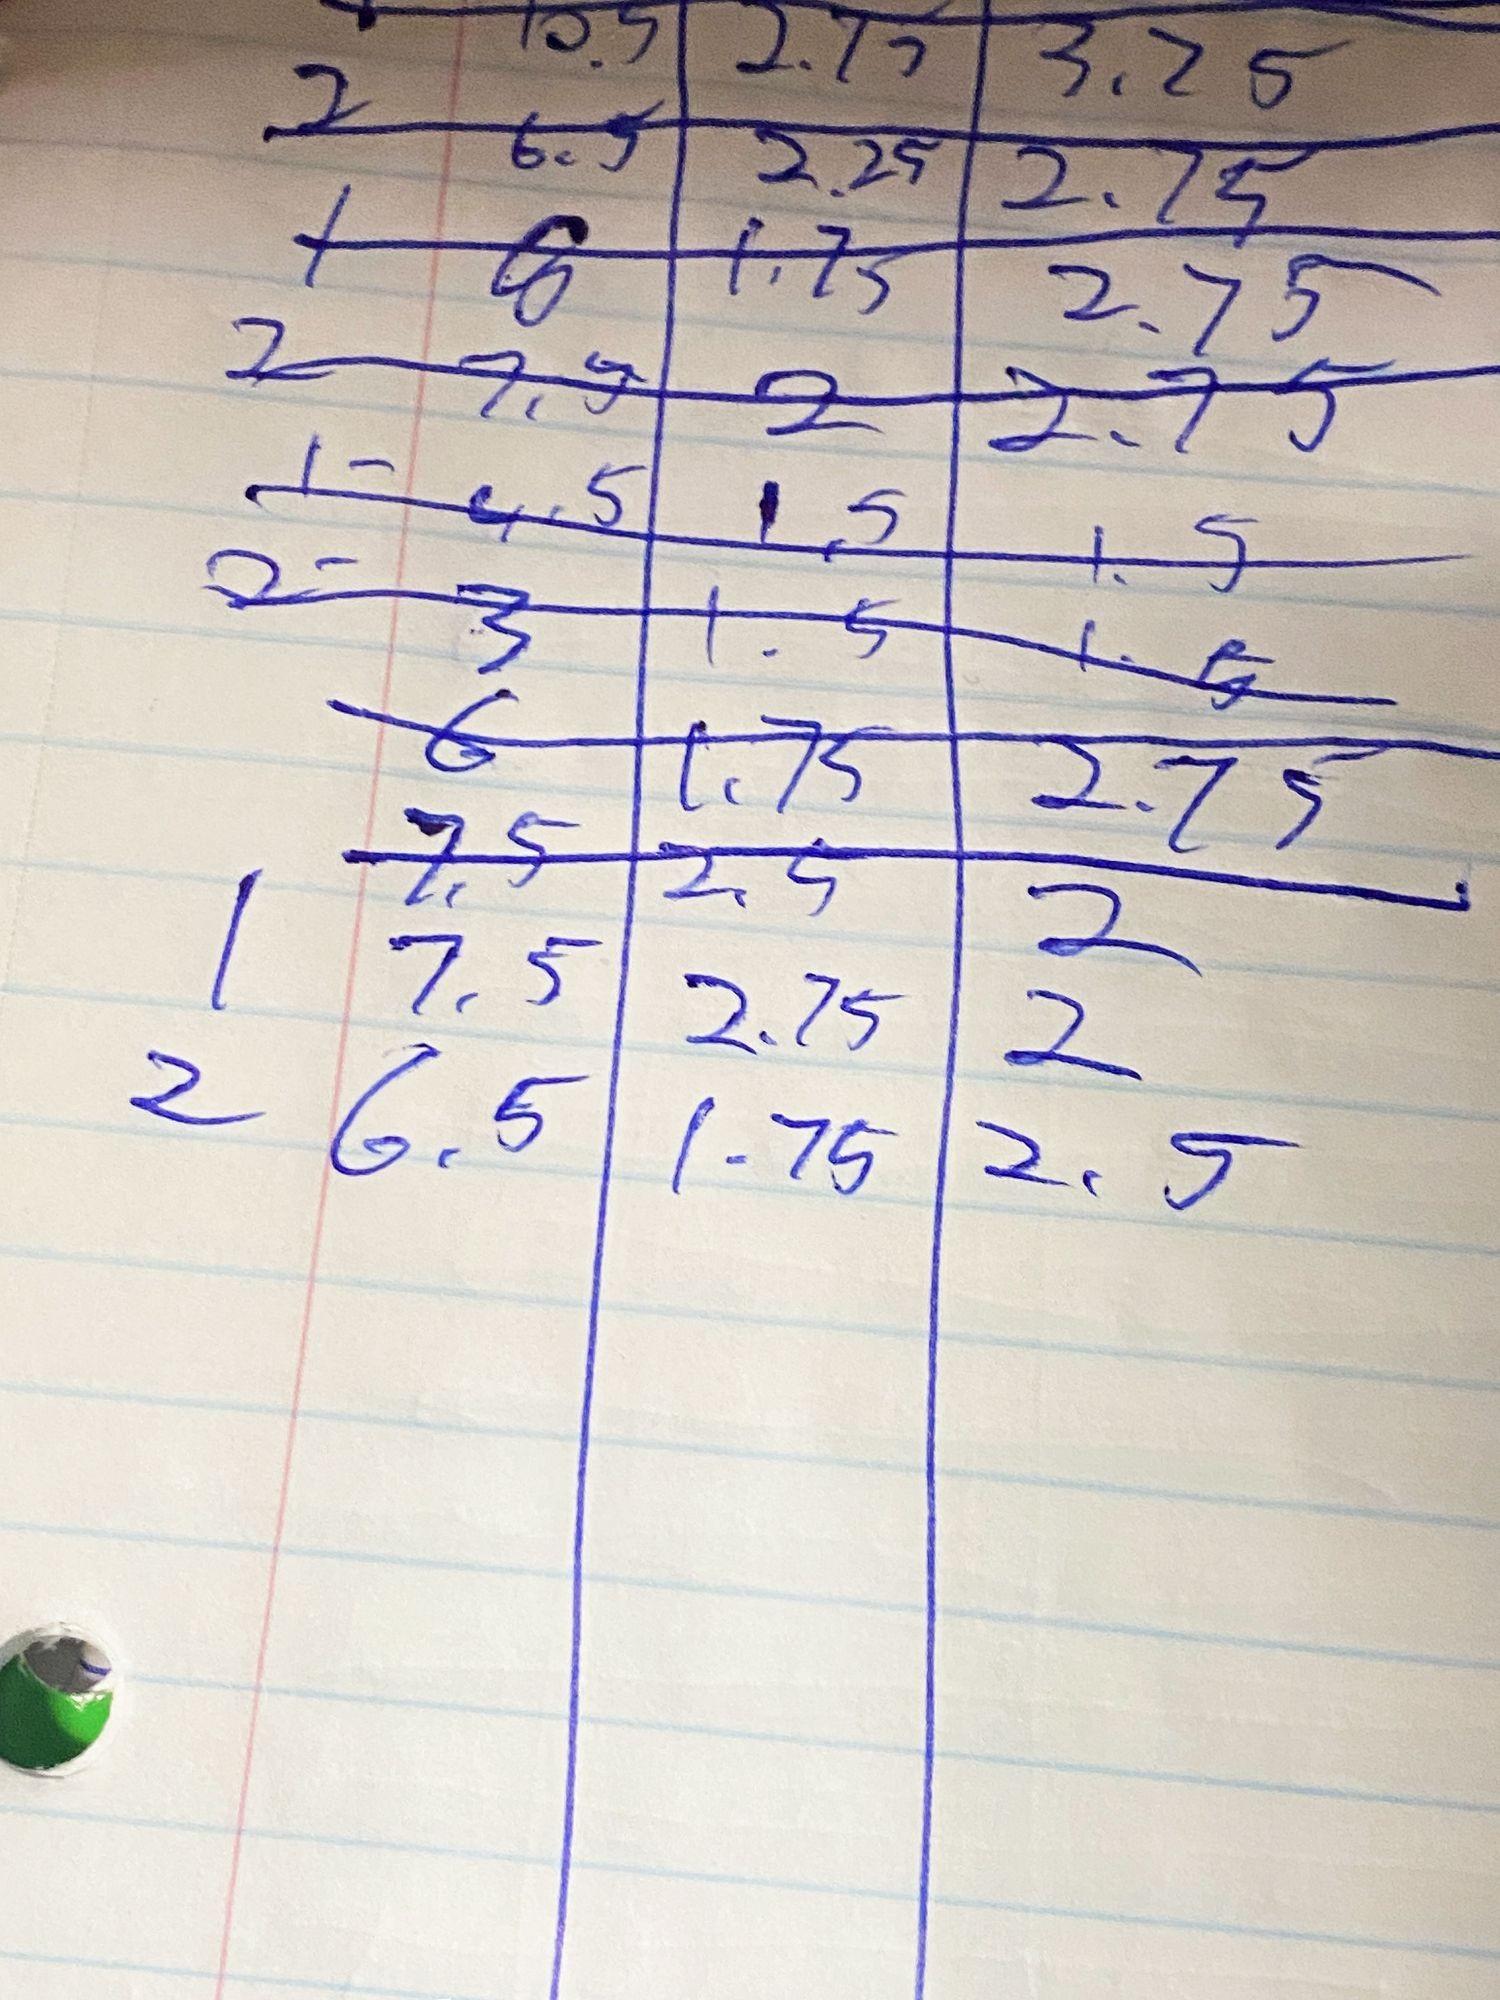 10.5 2.75 3.75
2 6.5 2.25 2.75
1 6 1.75 2.75
2 7.5 2 2.75
1- 4.5 1.5 1.5
2- 3 1.5 1.5
6 1.75 2.75
7.5 2.5 2
1 7.5 2.75 2
2 6.5 1.75 2.5